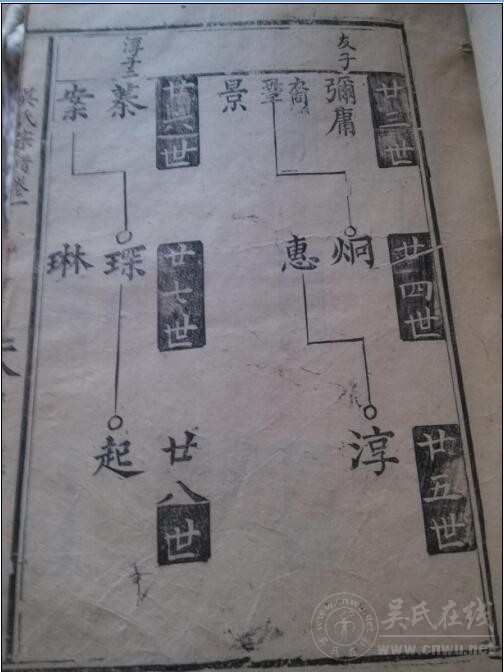 友子
廿三世
彌庸
裔
景
廿四世
炯
惠
廿五世
淳
淳子二
廿六世
棻
案
廿七世
琛
琳
廿八世
起
吳氏宗譜卷一
吴氏在线
www.cnwu.net